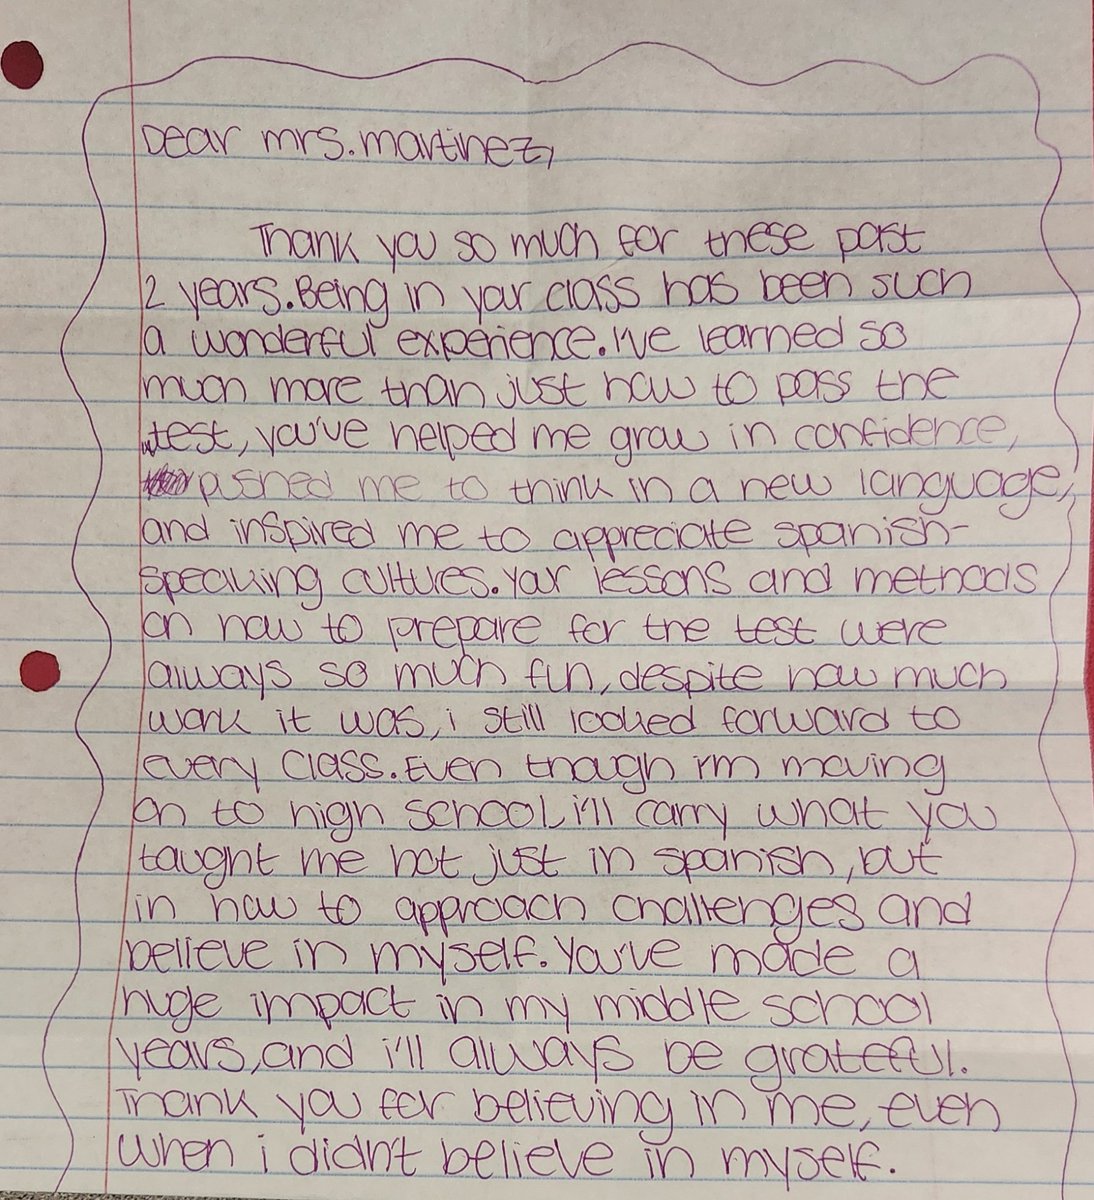 Dear mrs.martinez,
Thank you so much for these past
2 years.Being in your class has been such
a wonderful experience.I've learned so
much more than just how to pass the
test, you've helped me grow in confidence,
pushed me to think in a new language,
and inspired me to appreciate spanish-
speaking cultures.Your lessons and methods
on how to prepare for the test were
always so much fun, despite how much
work it was, i still looked forward to
every class.Even though i'm moving
on to high school, i'll carry what you
taught me not just in spanish, but
in how to approach challenges and
believe in myself. You've made a
huge impact in my middle school
years, and i'll always be grateful.
Thank you for believing in me, even
when i didn't believe in myself.